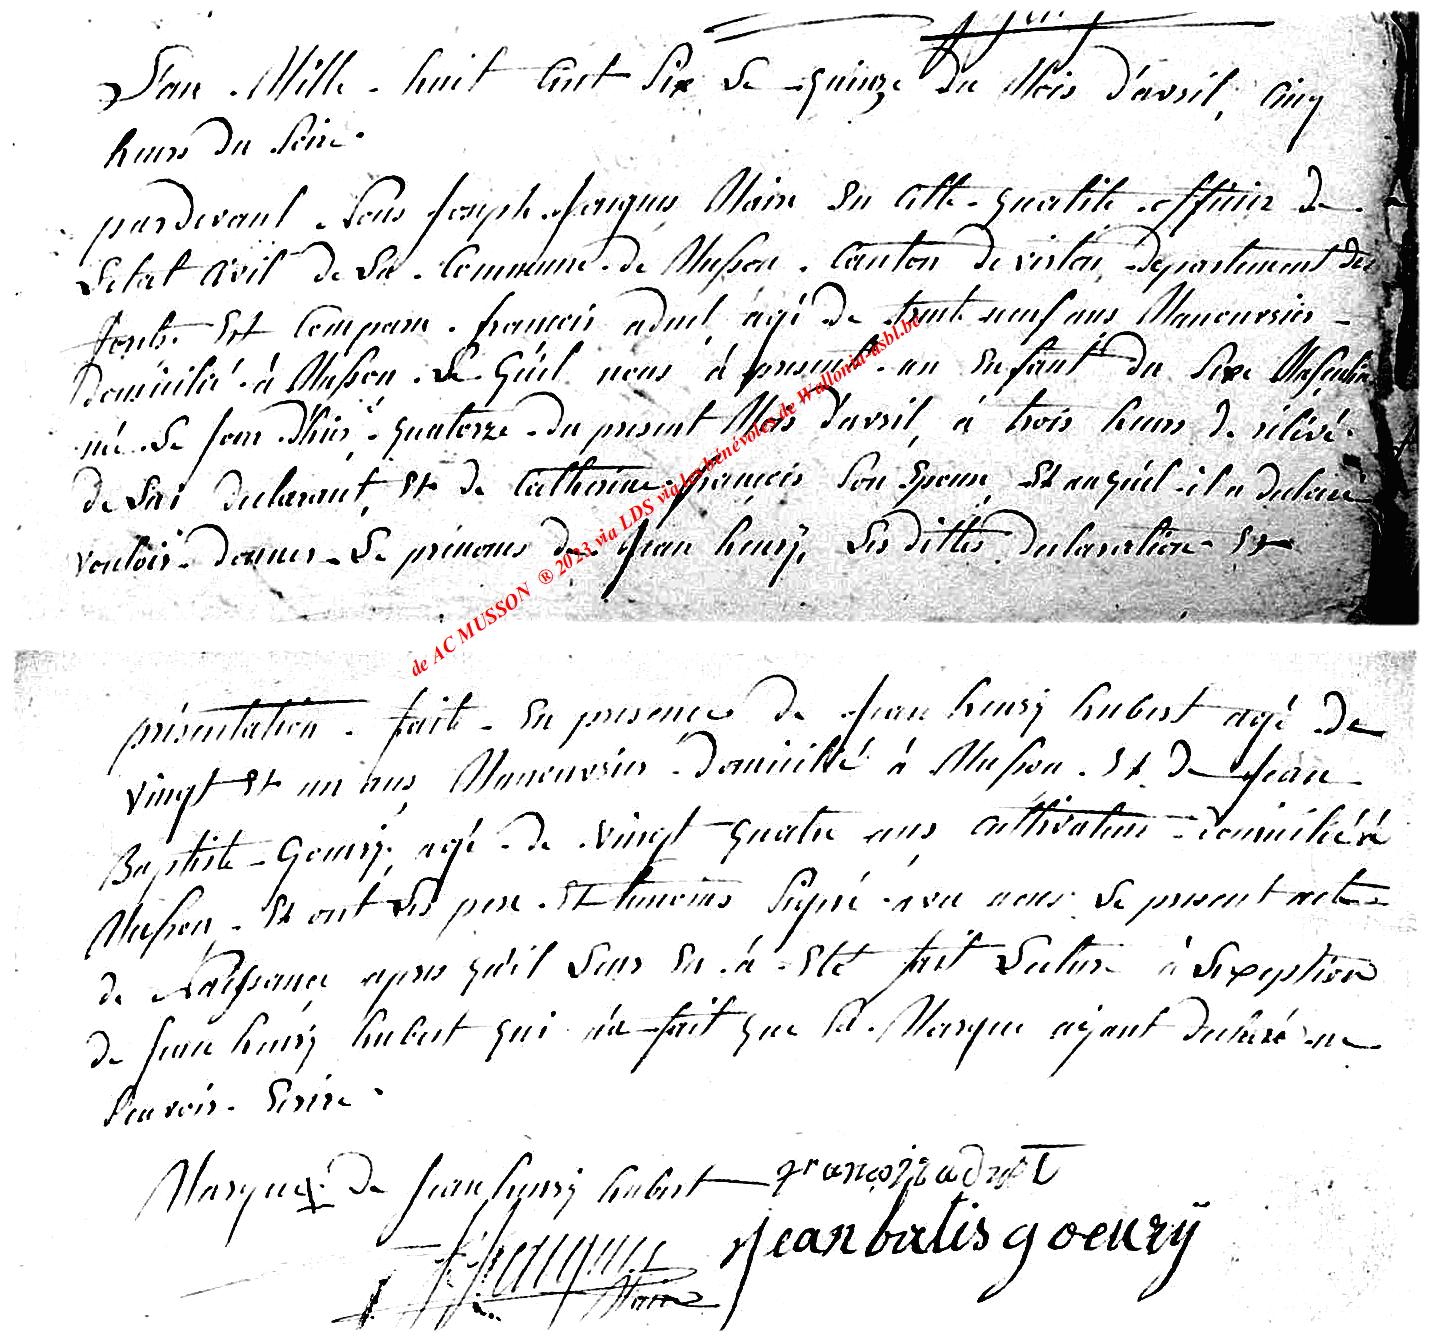 L'an Mille huit Cent Six Le quinze du Mois d'avril, Cinq
heures du Soire.
pardevant Nous Joseph Jacques Maire En Cette qualité officier de
Letat Civil de La Commune de Musson Canton de virton, departement des
forets Est Comparu françois adnet âgé de trente neuf ans Manouvrier
Domicilié à Musson Le quel nous à presenté un Enfant du Sexe Masculin
né Le jour d'hier quatorze du present Mois d'avril, à trois heures de rélévé
de Lui declarant, Et de Catherine françois Son Epouse, Et auquel il a declaré
vouloir donner Le prénoms de Jean henrÿ, Les dittes declaration Et
de AC MUSSON ® 2023 via LDS via les bénévoles de Wallonia-asbl.be
présentation faite En presence de Jean henrÿ hubert agé de
vingt Et un ans Manouvrier domicilié à Musson Et de Jean
Baptiste Goeurÿ agé de vingt quatre ans Cultivateur domicilié à
Musson, Et ont Les pere Et temoins Signé avec nous Le present acte
de Naissance apres qu'il Leur En à Eté fait Lecture à Lexception
de Jean henrÿ hubert qui n'a fait que Sa Marque aÿant declaré ne
Scavoir Ecrire.
Marque de Jean henrÿ hubert françois adnet
Jacques jean batis goeurÿ
Maire